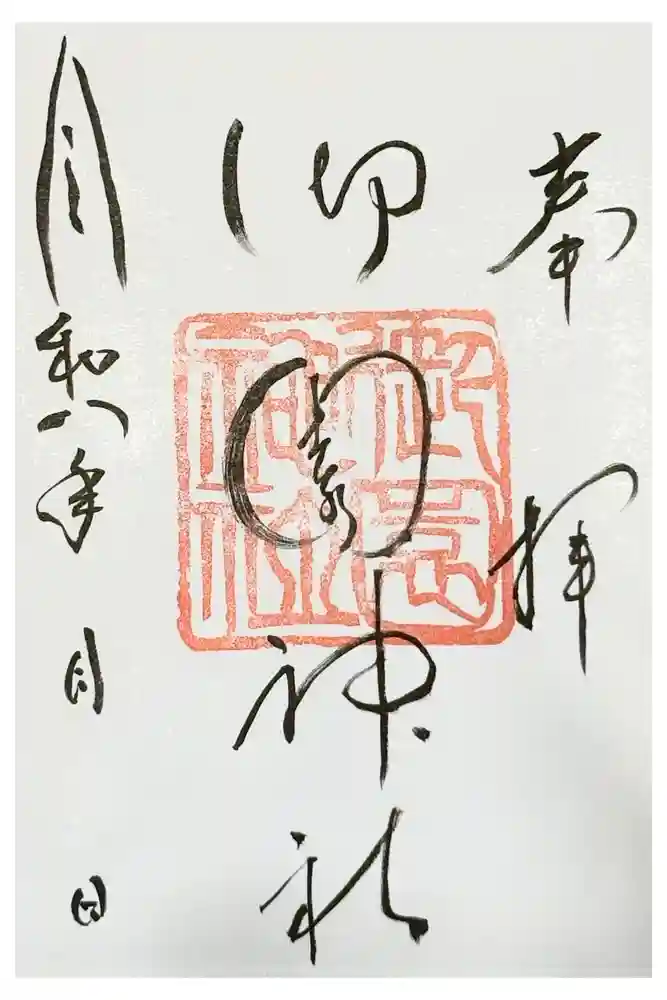 奉拝
御園神社
令和八年 月 日